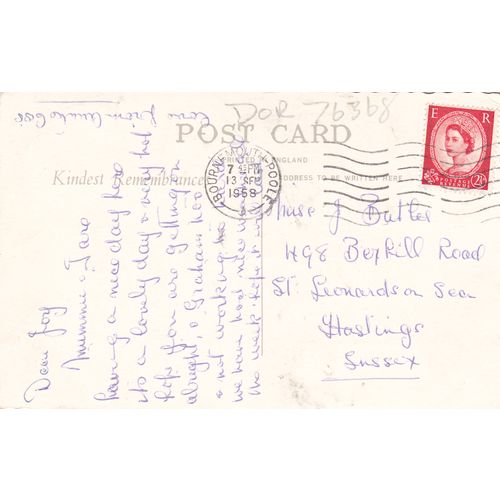 DOR 76368
POST CARD
PRINTED IN ENGLAND
Kindest Remembrance
ADDRESS TO BE WRITTEN HERE
BOURNEMOUTH-POOLE
7 PM
13 SEP
1959
E R
POSTAGE
2½
Dear Joy
Mummie & I are
having a nice day here
its a lovely day & very hot
hope you are getting on
alright, & Graham too
& not working
we have had nice
the week. Hope it
love from Auntie
Miss J Butler
498 Bexhill Road
St. Leonards on Sea
Hastings
Sussex